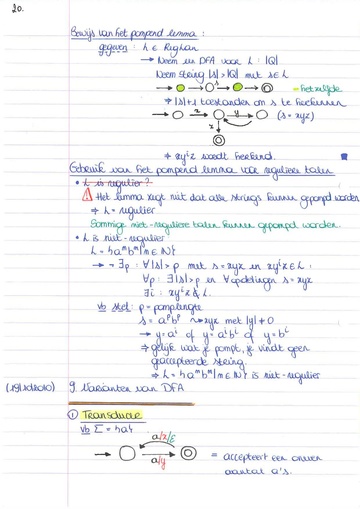 20.
Bewijs van het pompend lemma :
gegeven : L ∈ RegLan
→ Neem een DFA voor L : |Q|
Neem String |s| > |Q| met s ∈ L
= hetzelfde
⇒ |s|+1 toestanden om s te herkennen
x y (s = xyz)
z
⇒ xyⁱz wordt herkend.
Gebruik van het pompend lemma voor reguliere talen
• L is regulier?
! Het lemma zegt niet dat alle strings kunnen gepompt worden
⇒ L = regulier
Sommige niet-reguliere talen kunnen gepompt worden.
• L is niet-regulier
L = {aⁿbⁿ | n ∈ N}
→ ¬ ∃p : ∀|s| > p met s = xyz en xyⁱz ∈ L :
∀p : ∃|s| > p en ∀ opdelingen s = xyz
∃i : xyⁱz ∉ L.
Vb stel : p = pomplengte
s = aᵖbᵖ → xyz met |y| ≠ 0
→ y = aⁱ of y = aⁱbⁱ of y = bⁱ
⇒ gelijk wat je pompt, je vindt geen
geaccepteerde string
⇒ L = {aⁿbⁿ | n ∈ N} is niet-regulier
(19/10/2010) 9 Varianten van DFA
① Transducer
Vb Σ = {a}
a/x/ε
a/y
= accepteert een oneven
aantal a's.